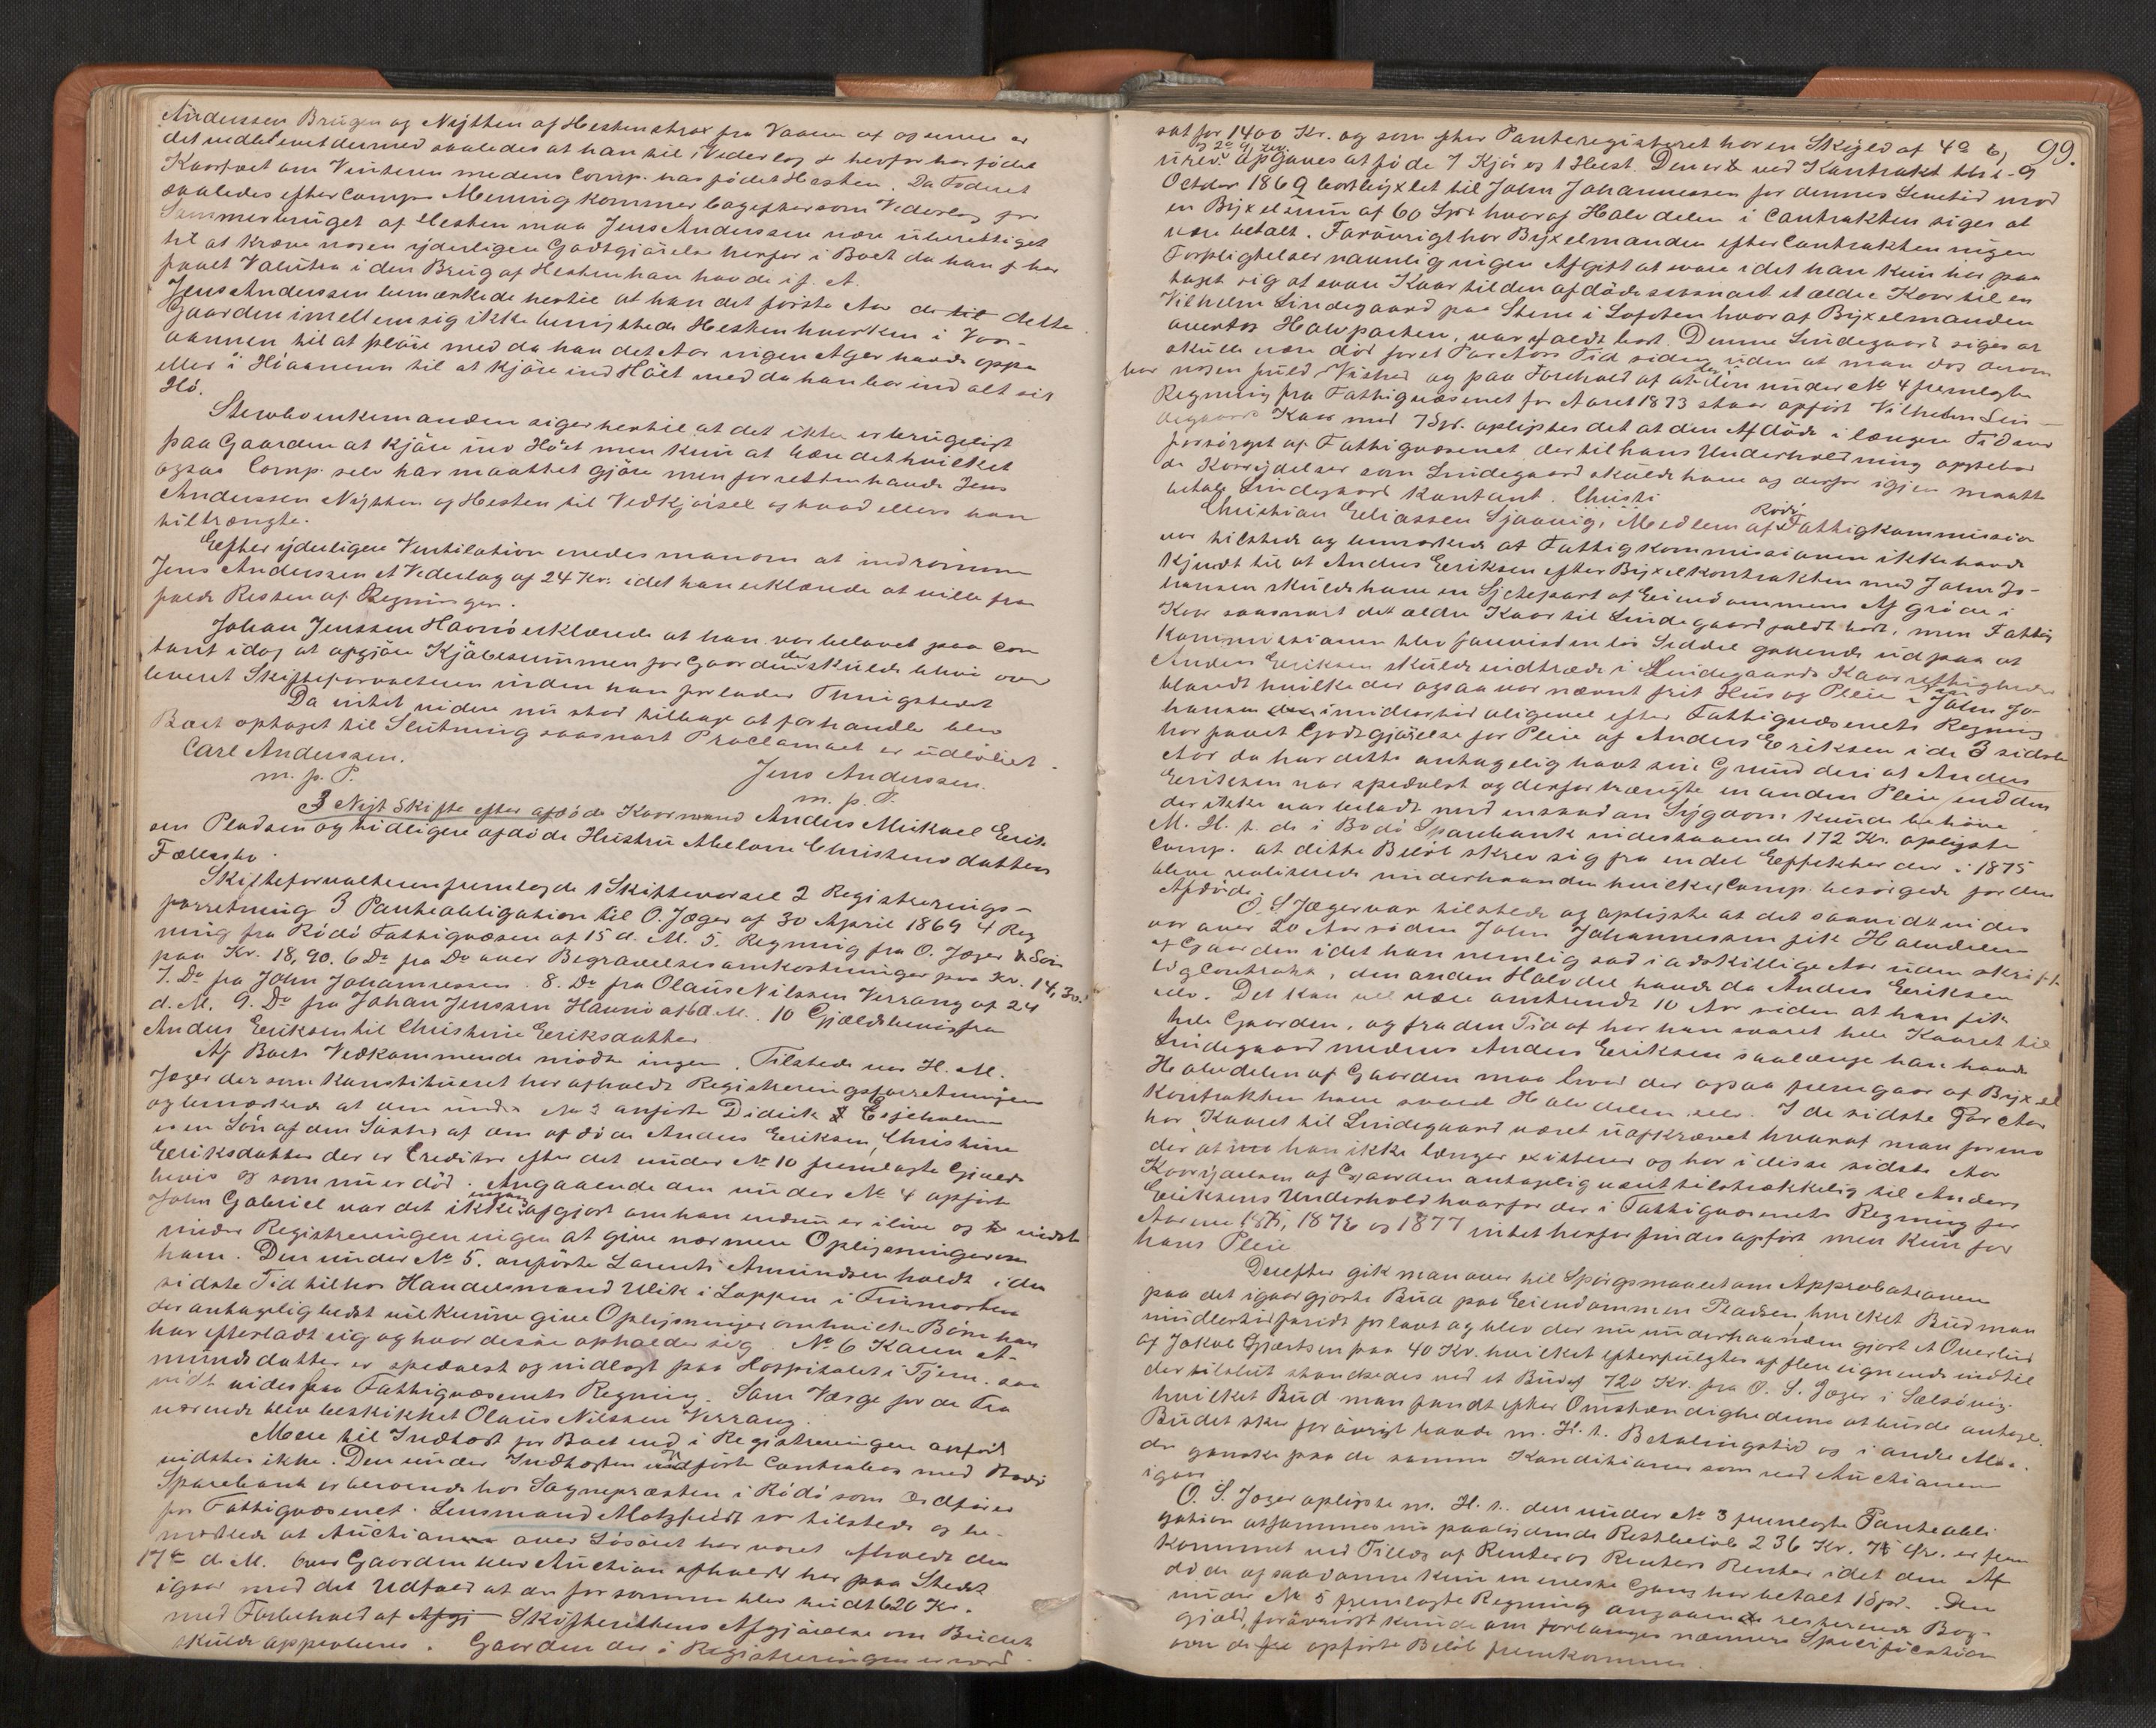 Anderssen Brugen og Nytten af Hesten strax fra Vaaren af og senere er
det indløbet dermed saaledes at han til Vederlag herfor har födet
Kaarfæet om Vinteren medens Comp. har födet Hesten. Da Foderet
saaledes efter Comp. Mening kommer bagefter som Vederlag for
Sommerbruget af Hesten maa Jens Anderssen være uberettiget
til at kræve nogen yderligere Godtgjörelse herfor i Boet da han har
faaet Valuta i den Brug af Hesten han havde if. A.
Jens Anderssen bemærkede hertil at han det förste Aar de til delte
Gaarden imellem sig ikke benyttede Hesten hverken i Vor-
aannen til at plöie med da han det Aar ingen Ager havde oppe
eller i Höaannen til at kjöre ind Höet med da han bar ind alt sit
Hö.
Stervboenkemanden siger hertil at det ikke er brugeligt
paa Gaarden at kjöre ind Höet men kun at bære det hvilket
ogsaa Comp. selv har maattet gjöre men forresten havde Jens
Anderssen Nytten af Hesten til Vedkjörsel og hvad ellers han
tiltrængte.
Efter yderligere Ventilation enedes man om at indrömme
Jens Anderssen et Vederlag af 24 Kr. idet han erklærede at ville fra-
falde Resten af Regningen.
Johan Jenssen Havnö erklærede at han var belavet paa con
tant idag at opgjöre Kjöbesummen for Gaarden der skulde blive over
leveret Skifteforvalteren inden han forlader Thingstedet
Da intet videre nu stod tilbage at forhandle blev
Boet optaget til Slutning saasnart Proclamaet er udlöbet.
Carl Anderssen.
m. p. P.
Jens Anderssen.
m. p. P.
3 Nyt Skifte efter afdöde Kaarmand Anders Mikael Erik-
sen Pladsen og tidligere afdöde Hustru Abelone Christensdatters
Fællesbo.
Skifteforvalteren fremlagde 1 Skiftevarsel 2 Registrerings-
forretning 3 Panteobligation til O. Jæger af 30 April 1869 4 Reg
ning fra Rödö Fattigvæsen af 15 d. M. 5. Regning fra O. Jæger & Sön
paa Kr. 18,90. 6 Do fra Do over Begravelsesomkostninger paa Kr. 14,30.
7. Do fra John Johannessen. 8. Do fra Olaus Nilssen Verrang af 24
d. M. 9. Do fra Johan Jenssen Havnö af 6 d. M. 10 Gjældsbevis fra
Anders Eriksen til Christine Eriksdatter
Af Boets Vedkommende mödte ingen. Tilstede var H. M.
Jæger der som konstitueret har afholdt Registreringsforretningen
og bemærkede at den under No 3 anförte Didrik
er en Sön af den Söster af den afdöde Anders Eriksen, Christine
Eriksdatter der er Creditor efter det under No 10 fremlagte Gjælds
bevis og som nu er död. Angaaende den under No 4 opförte
John Gabriel var det ikke afgjort om han endnu er ilive og vidste
under Registreringen ingen at give nærmere Oplysninger om
ham. Den under No 5. anförte Lorents Amundsen holdt i den
sidste Tid til hos Handelsmand Ulik i Loppen i Finmarken
der antagelig bedst vil kunne give Oplysninger om hvilke Börn han
har efterladt sig og hvor disse opholder sig. No 6 Karen A-
mundsdatter er spedalsk og indlagt paa Hospitalet i Tjern. saa
vidt vides paa Fattigvæsenets Regning. Som Værge for de Fra
værende blev beskikket Olaus Nilssen Verrang.
Mere til Indtægt for Boet end i Registreringen anfört
vidstes ikke. Den under Indtægten anförte Contrabog med Bodö
Sparebank er beroende hos Sognepræsten i Rödö som Ordförer
for Fattigvæsenet. Lensmand Motzfeldt var tilstede og be-
mærkede at Auctionen over Lösöret har været afholdt den
17de d. M. Over Gaarden blev Auction afholdt her paa Stedet
igaar med det Udfald at den for samme blev budt 620 Kr.
med Forbehold af Afgj Skifterettens Afgjörelse om Budet
skulde approberes. Gaarden der i Registreringen er værd-
99.
sat for 1400 Kr. og som efter Panteregisteret har en Skyld af 4 b,
og 2 rev.
urev. opgaves at föde 7 Kjör og 1 Hest. Den er ved Kontrakt tht. 9
October 1869 bortbyxlet til John Johannessen for dennes Levetid mod
en Byxelsum af 60 Spd hvoraf Halvdelen i Contrakten siges at
være betalt. Forövrigt har Byxelmanden efter Contrakten ingen
Forpligtelser navnlig ingen Afgift at svare idet han kun har paa
taget sig at svare Kaar til den afdöde saasnart et ældre Kaar til en
Vilhelm Lindegaard paa Stene i Lofoten hvoraf Byxelmanden
overtog Halvparten, var faldt bort. Denne Lindegaard siges at
skulle være död for et Par Aars Tid siden uden at man dog derom
har nogen fuld Vished og paa Forehold af at der i den under No 4 fremlagte
Regning fra Fattigvæsenet for Aaret 1873 staar opfört Vilhelm Lin-
degaards Kaar med 7 Spd. oplystes det at den Afdöde i længere Tid var
forsörget af Fattigvæsenet der til hans Underholdning oppebar
de Kaarydelser som Lindegaard skulde have og derfor igjen maatte
betale Lindegaard kontant. Christi
Christian Eliassen Sjaavig, Medlem af Rödö Fattigkommission
var tilstede og bemærkede at Fattigkommissionen ikke havde
kjendt til at Anders Eriksen efter Byxelkontrakten med John Jo-
hansen skulde have en Sjettepart af Eiendommens Afgröde i
Kaar saasnart det ældre Kaar til Lindegaard faldt bort, men Fattig
kommissionen blev forevist en lös Seddel gaaende ud paa at
Anders Eriksen skulde indtræde i Lindegaards Kaarrettigheder
blandt hvilke der ogsaa var nævnt frit Hus og Pleie. Naar John Jo-
hansen imidlertid aligevel efter Fattigvæsenets Regning
har faaet Godtgjörelse for Pleie af Anders Eriksen i de 3 sidste
Aar da har dette antagelig havt sin Grund deri at Anders
Eriksen var spedalsk og derfor trængte en anden Pleie end den
der ikke var beladt med en saadan Sygdom kunde behöve.
M. H. t. de i Bodö Sparebank indestaaende 172 Kr. oplyste
Comp. at dette Belöb skrev sig fra endel Effekter der i 1875
bleve realiserede underhaanden hvilket Comp. besörgede for den
Afdöde.
O. S. Jæger var tilstede og oplyste at det saavidt vides
var over 20 Aar siden John Johannessen fik Halvdelen
af Gaarden idet han nemlig sad i adskillige Aar uden skrift
lig Contrakt, den anden Halvdel havde da Anders Eriksen
selv. Det kan vel være omtrendt 10 Aar siden at han fik
hele Gaarden, og fra den Tid af har han svaret hele Kaaret til
Lindegaard medens Anders Eriksen saalænge han havde
Halvdelen af Gaarden maa hvad der ogsaa fremgaar af Byxel
kontrakten have svaret Halvdelen selv. I de sidste Par Aar
har Kaaret til Lindegaard været uafkrævet hvoraf man formo
der at han ikke længer existerer og har i disse sidste Aar
Kaarydelsen af Gaarden antagelig været tilstrækkelig til Anders
Eriksens Underhold hvorfor der i Fattigvæsenets Regning for
Aarene 1875, 1876 og 1877 intet herfor findes opfört men kun for
hans Pleie
Derefter gik man over til Spörgsmaalet om Approbationen
paa det igaar gjorte Bud paa Eiendommen Pladsen, hvilket Bud man
imidlertid fandt for lavt og blev der nu underhaanden gjort et Overbud
af Jakob Gjærtsen paa 40 Kr. hvilket efterfulgtes af flere lignende indtil
der tilslut standsedes ved et Bud af 720 Kr. fra O. S. Jæger i Selsövig.
hvilket Bud man fandt efter Omstændighederne at burde antage.
Budet sker forövrigt baade m. H. t. Betalingstid og i andre Maa-
der ganske paa de samme Konditioner som ved Auctionen
igaar
O. S. Jæger oplyste m. H. t. den under No 3 fremlagte Panteobli
gation at sammes nu paalydende Restbelöb 236 Kr. 75 Öre. er frem
kommet ved Tillæg af Renter og Renters Renter idet den Af
döde ogsaavanne kun en eneste Gang har betalt 1 Spd. Den
under No 5 fremlagte Regning angaaende resterende Bog-
gjæld, forövrigt kunde om forlanges nærmere Specification
over de opförte Belöb fremkomme.